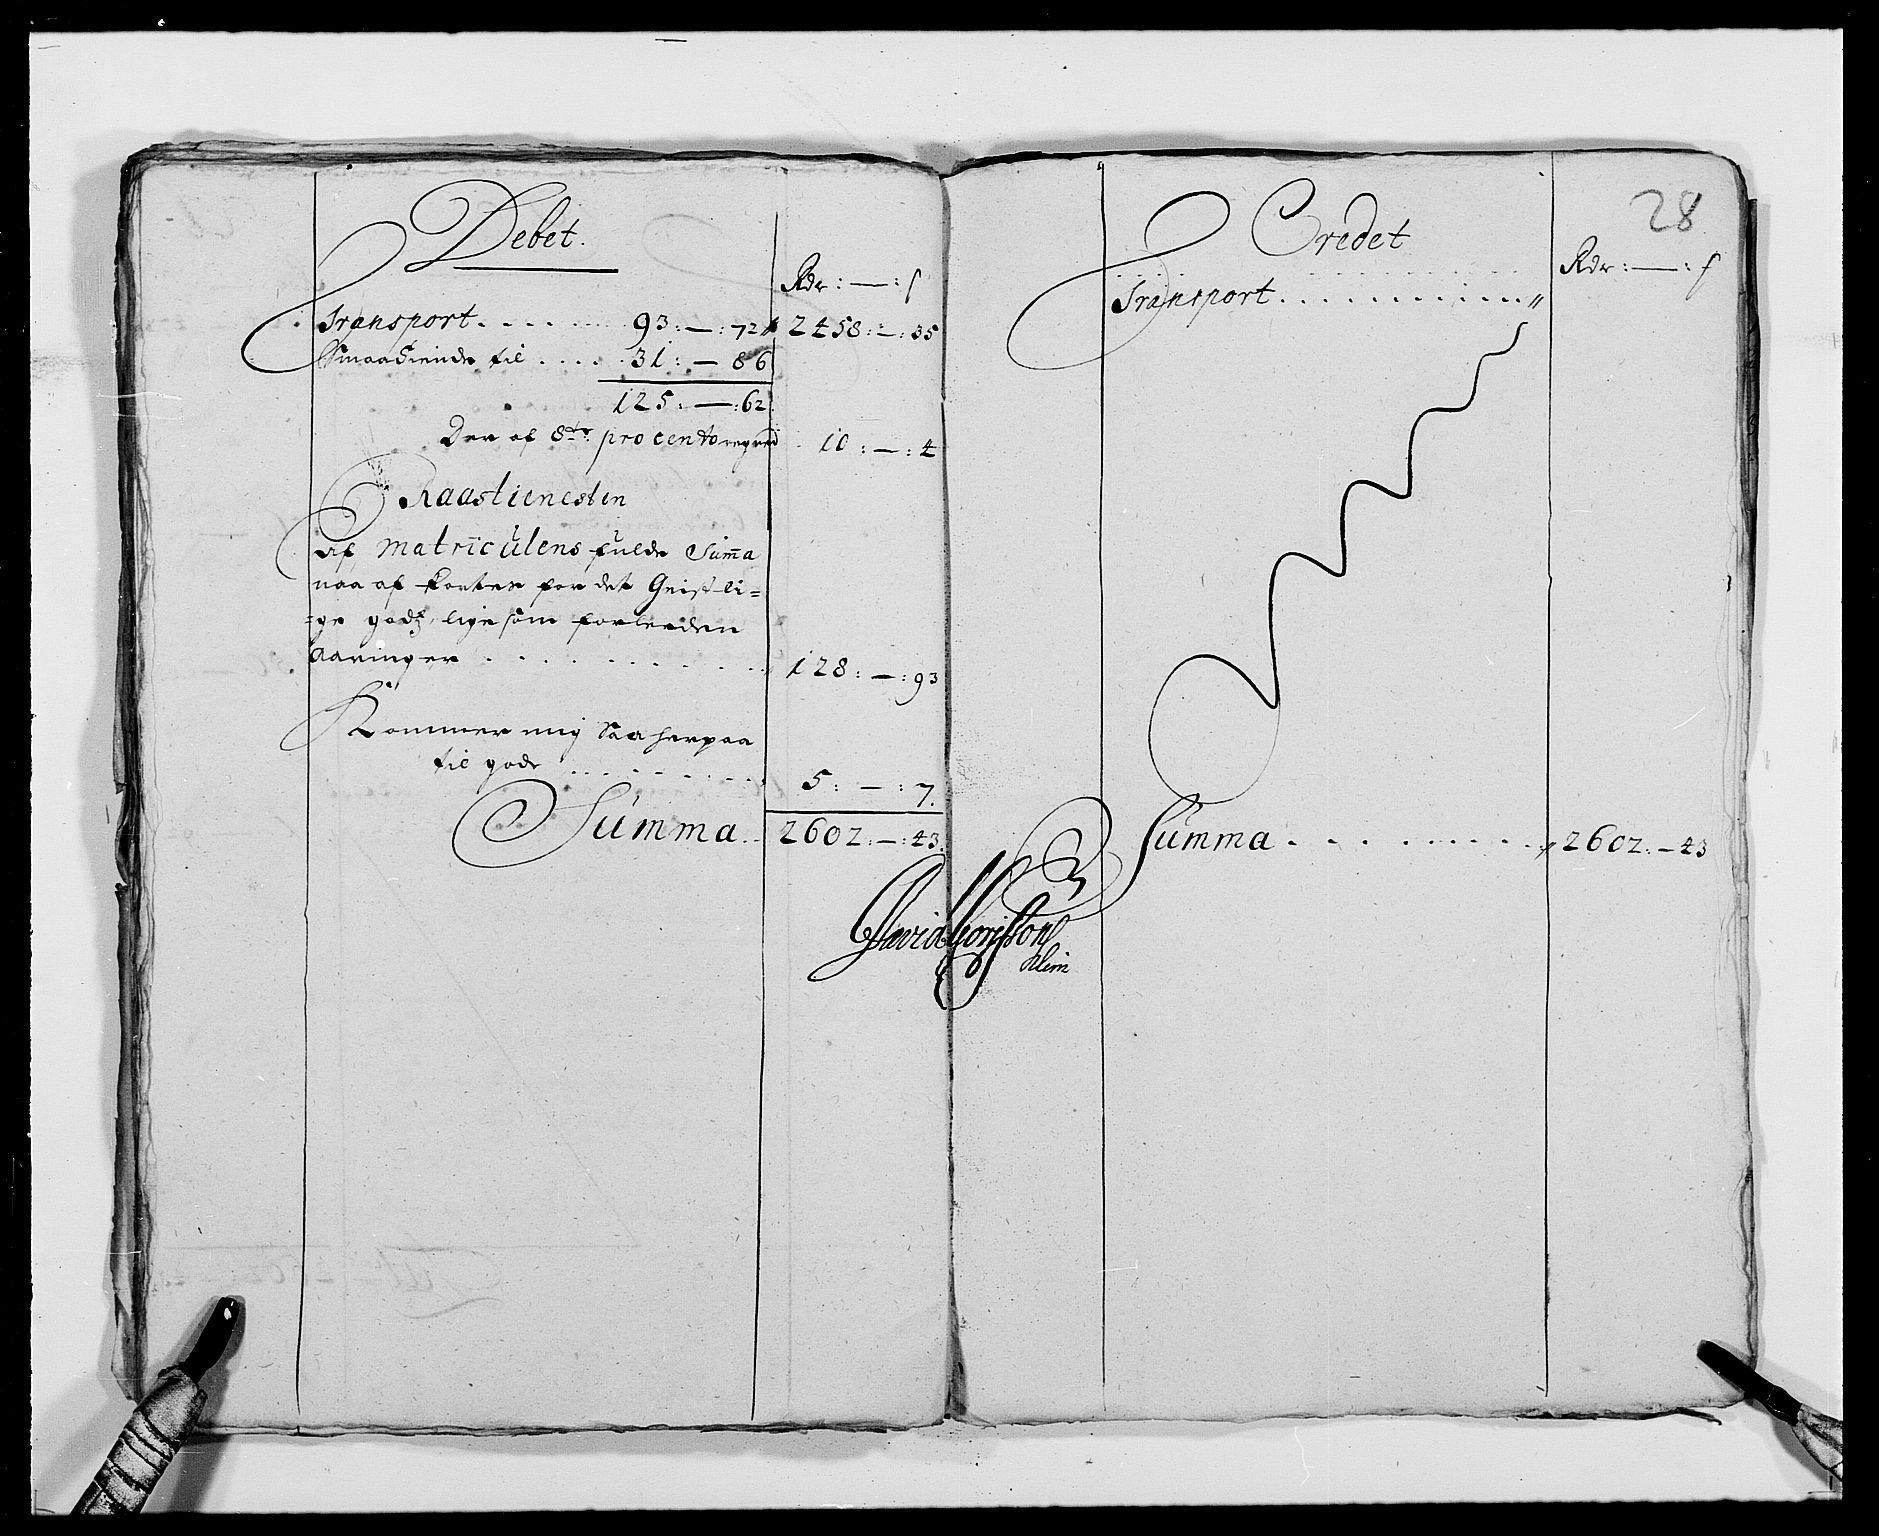 Debet.
Rdr: — : ſ
Transport. . . . . . . . 93: — : 72 2458: — : 35
Smaa Tiende til . . . . . 31: — 86
125: — : 62
Der af 8te pro cento 10: — : 4
Raastienesten
Af matriculens fulde Summa
naa af kortes for det Geistli=
=ge godz, lige som forleeden
Aaringer . . . . . . . . . . 128: — : 93
Kommer mig Saa herpaa
til gode . . . . . . . . 5: — : 7.
Summa . . 2602: — : 43.
28
Credet
Rdr: — : ſ
Transport . . . . . . . . . . . . "
Summa . . . . . . . . . . 2602: — 43
David